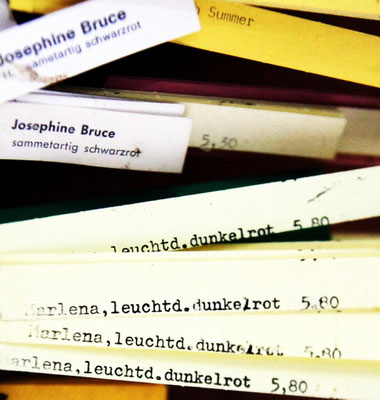 Summer
Josephine Bruce
sammetartig schwarzrot
Josephine Bruce
sammetartig schwarzrot
5,30
leuchtd.dunkelrot 5,80
Marlena,leuchtd.dunkelrot 5,80
Marlena,leuchtd.dunkelrot 5,80
Marlena,leuchtd.dunkelrot 5,80